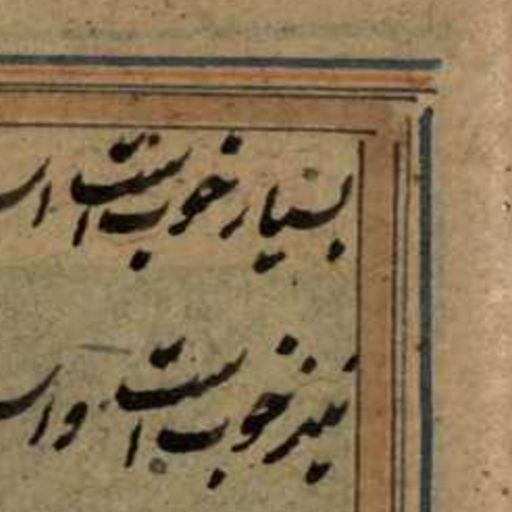 بسیار خوب است
نیز خوب است و